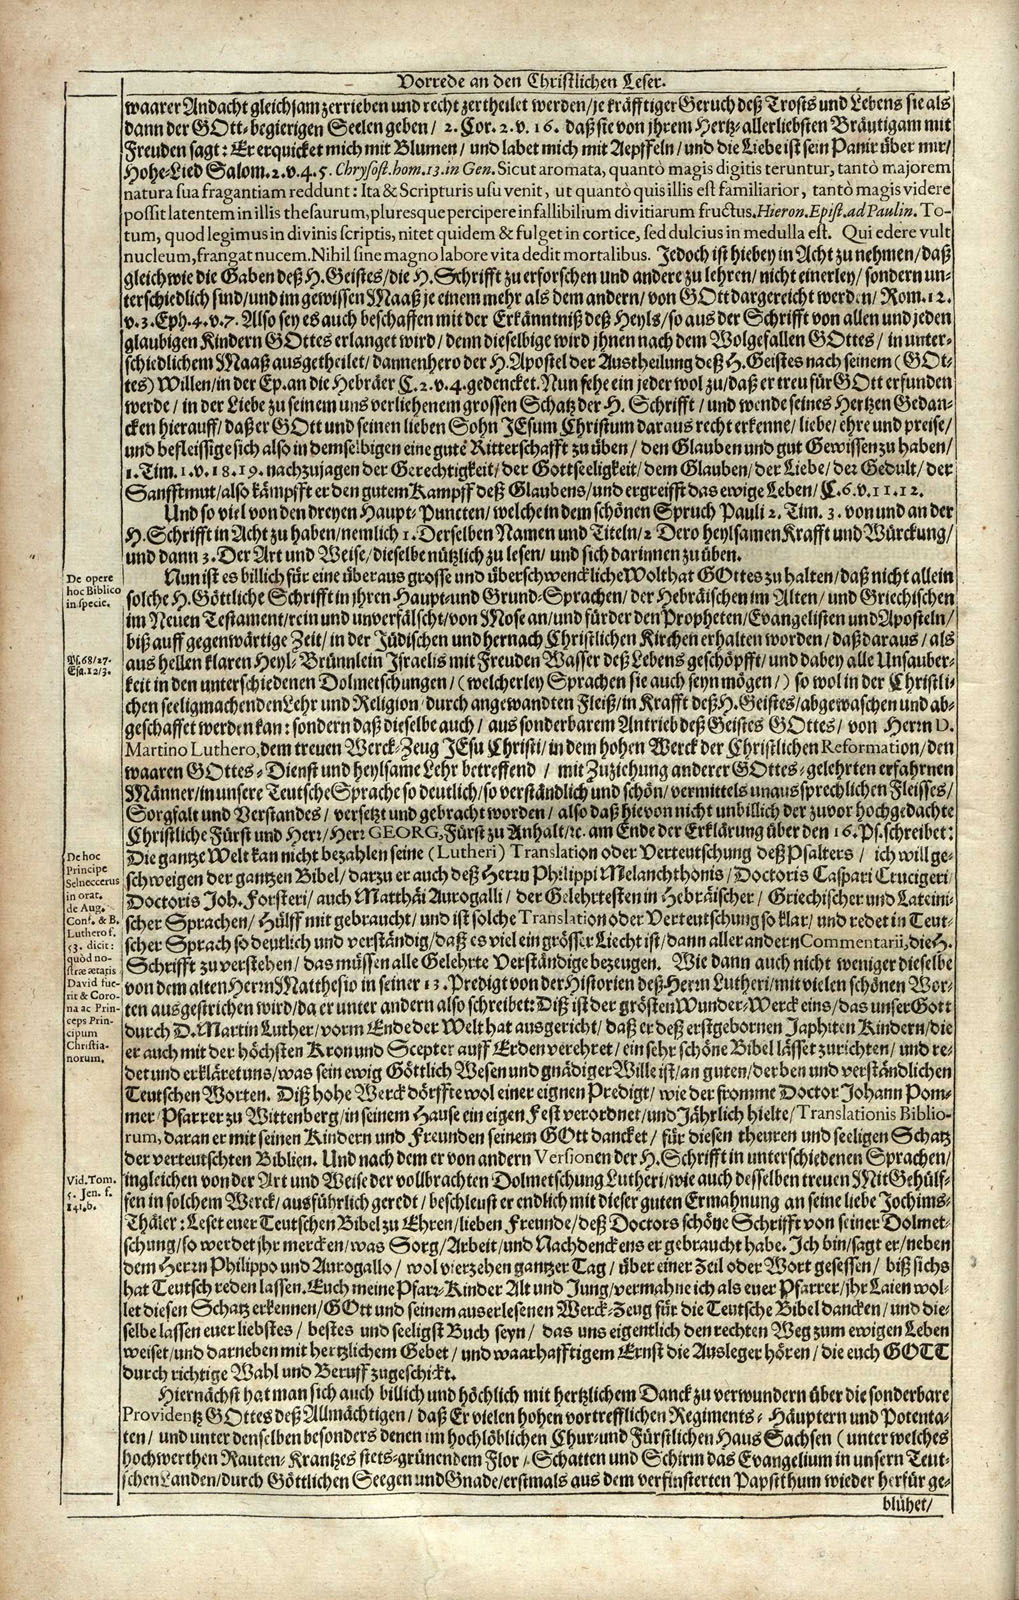 Vorrede an den Christlichen Leser.
waarer Andacht gleichsam zerrieben und recht zertheilet werden/ je kräfftiger Geruch deß Trosts und Lebens sie als
dann der GOtt-begierigen Seelen geben/ 2. Cor. 2. v. 16. daß sie von jhrem Hertz-allerliebsten Bräutigam mit
Freuden sagt: Er erquicket mich mit Blumen/ und labet mich mit Aepffeln/ und die Liebe ist sein Panir über mir/
Hohe-Lied Salom. 2. v. 4. 5. Chrysost. hom. 13. in Gen. Sicut aromata, quantò magis digitis teruntur, tantò majorem
natura sua fragantiam reddunt: Ita & Scripturis usu venit, ut quantò quis illis est familiarior, tantò magis videre
possit latentem in illis thesaurum, pluresque percipere infallibilium divitiarum fructus. Hieron. Epist. ad Paulin. To-
tum, quod legimus in divinis scriptis, nitet quidem & fulget in cortice, sed dulcius in medulla est. Qui edere vult
nucleum, frangat nucem. Nihil sine magno labore vita dedit mortalibus. Jedoch ist hiebey in Acht zu nehmen/ daß
gleich wie die Gaben deß H. Geistes/ die H. Schrifft zu erforschen und andere zu lehren/ nicht einerley/ sondern un-
terschiedlich sind/ und im gewissen Maaß je einem mehr als dem andern/ von GOtt dargereicht werden/ Rom. 12.
v. 3. Eph. 4. v. 7. Also sey es auch beschaffen mit der Erkänntniß deß Heyls/ so aus der Schrifft von allen und jeden
glaubigen Kindern GOttes erlanget wird/ denn dieselbige wird jhnen nach dem Wolgefallen GOttes/ in unter-
schiedlichem Maaß ausgetheilet/ dannenhero der H. Apostel der Austheilung deß H. Geistes nach seinem (GOt-
tes) Willen/ in der Ep. an die Hebräer C. 2. v. 4. gedencket. Nun sehe ein jeder wol zu/ daß er treu für GOtt erfunden
werde/ in der Liebe zu seinem uns verliehenem grossen Schatz der H. Schrifft/ und wende seines Hertzen Gedan-
cken hierauff/ daß er GOtt und seinen lieben Sohn JEsum Christum daraus recht erkenne/ liebe/ ehre und preise/
und befleissige sich also in demselbigen eine gute Ritterschafft zu üben/ den Glauben und gut Gewissen zu haben/
1. Tim. 1. v. 18. 19. nachzujagen der Gerechtigkeit/ der Gottseeligkeit/ dem Glauben/ der Liebe/ der Gedult/ der
Sanfftmut/ also kämpfft er den gutem Kampff deß Glaubens/ und ergreifft das ewige Leben/ C. 6. v. 11. 12.
Und so viel von den dreyen Haupt-Puncten/ welche in dem schönen Spruch Pauli 2. Tim. 3. von und an der
H. Schrifft in Acht zu haben/ nemlich 1. Derselben Namen und Titeln/ 2 Dero heylsamen Krafft und Würckung/
und dann 3. Der Art und Weise/ dieselbe nützlich zu lesen/ und sich darinnen zu üben.
De opere
hoc Biblico
in specie.
Nun ist es billich für eine überaus grosse und überschwenckliche Wolthat GOttes zu halten/ daß nicht allein
solche H. Göttliche Schrifft in jhren Haupt-und Grund-Sprachen/ der Hebräischen im Alten/ und Griechischen
im Neuen Testament/ rein und unverfälscht/ von Mose an/ und für der den Propheten/ Evangelisten und Aposteln/
biß auff gegenwärtige Zeit/ in der Jüdischen und hernach Christlichen Kirchen erhalten worden/ daß daraus/ als
Ps. 68/27.
Esa. 12/3.
aus hellen klaren Heyl-Brünnlein Israelis mit Freuden Wasser deß Lebens geschöpfft/ und dabey alle Unsauber-
keit in den unterschiedenen Dolmetschungen/ (welcherley Sprachen sie auch seyn mögen/) so wol in der Christli-
chen seeligmachenden Lehr und Religion/ durch angewandten Fleiß/ in Krafft deß H. Geistes/ abgewaschen und ab-
geschaffet werden kan: sondern daß dieselbe auch/ aus sonderbarem Antrieb deß Geistes GOttes/ von Herrn D.
Martino Luthero, dem treuen Werck-Zeug JEsu Christi/ in dem hohen Werck der Christlichen Reformation/ den
waaren GOttes-Dienst und heylsame Lehr betreffend/ mit Zuziehung anderer GOttes-gelehrten erfahrnen
Männer/ in unsere Teutsche Sprache so deutlich/ so verständlich und schön/ vermittels unaussprechlichen Fleisses/
Sorgfalt und Verstandes/ versetzt und gebracht worden/ also daß hievon nicht unbillich der zuvor hochgedachte
Christliche Fürst und Herr/ Herr GEORG, Fürst zu Anhalt/ rc. am Ende der Erklärung über den 16. Ps. schreibet:
De hoc
Principe
Selneccerus
in orat.
de Aug.
Conf. & B.
Luthero f.
53. dicit:
quòd no-
stræ ætatis
David fue-
rit & Coro-
na ac Prin-
ceps Prin-
cipum
Christia-
norum.
Die gantze Welt kan nicht bezahlen seine (Lutheri) Translation oder Verteutschung deß Psalters/ ich will ge-
schweigen der gantzen Bibel/ darzu er auch deß Herrn Philippi Melanchthonis/ Doctoris Caspari Crucigeri/
Doctoris Joh. Forsteri/ auch Matthäi Aurogalli/ der Gelehrtesten in Hebräischer/ Griechischer und Lateini-
scher Sprachen/ Hülff mit gebraucht/ und ist solche Translation oder Verteutschung so klar/ und redet in Teut-
scher Sprach so deutlich und verständig/ daß es viel ein grösser Liecht ist/ dann aller andern Commentarii, die H.
Schrifft zu verstehen/ das müssen alle Gelehrte Verständige bezeugen. Wie dann auch nicht weniger dieselbe
von dem alten Herrn Matthesio in seiner 13. Predigt von der Historien deß Herrn Lutheri/ mit vielen schönen Wor-
ten ausgestrichen wird/ da er unter andern also schreibet: Diß ist der grösten Wunder-Werck eins/ das unser Gott
durch D. Martin Luther/ vorm Ende der Welt hat ausgericht/ daß er deß erstgebornen Japhiten Kindern/ die
er auch mit der höchsten Kron und Scepter auff Erden verehret/ ein sehr schöne Bibel lässet zurichten/ und re-
det und erkläret uns/ was sein ewig Göttlich Wesen und gnädiger Wille ist/ an guten/ derben und verständlichen
Teutschen Worten. Diß hohe Werck dörffte wol einer eignen Predigt/ wie der fromme Doctor Johann Pom-
mer/ Pfarrer zu Wittenberg/ in seinem Hause ein eigen Fest verordnet/ und Jährlich hielte/ Translationis Biblio-
rum, daran er mit seinen Kindern und Freunden seinem GOtt dancket/ für diesen theuren und seeligen Schatz
der verteutschten Biblien. Und nach dem er von andern Versionen der H. Schrifft in unterschiedenen Sprachen/
Vid. Tom.
5. Jen. f.
141. b.
ingleichen von der Art und Weise der vollbrachten Dolmetschung Lutheri/ wie auch desselben treuen Mit Gehülf-
fen in solchem Werck/ ausführlich geredt/ beschleust er endlich mit dieser guten Ermahnung an seine liebe Jochims-
Thäler: Leset euer Teutschen Bibel zu Ehren/ lieben Freunde/ deß Doctors schöne Schrifft von seiner Dolmet-
schung/ so werdet jhr mercken/ was Sorg/ Arbeit/ und Nachdenckens er gebraucht habe. Ich bin/ sagt er/ neben
dem Herrn Philippo und Aurogallo/ wol vierzehen gantzer Tag/ über einer Zeil oder Wort gesessen/ biß sichs
hat Teutsch reden lassen. Euch meine Pfarr-Kinder Alt und Jung/ vermahne ich als euer Pfarrer/ jhr Laien wol-
let diesen Schatz erkennen/ GOtt und seinem auserlesenen Werck-Zeug für die Teutsche Bibel dancken/ und die-
selbe lassen euer liebstes/ bestes und seeligst Buch seyn/ das uns eigentlich den rechten Weg zum ewigen Leben
weiset/ und darneben mit hertzlichem Gebet/ und waarhafftigem Ernst die Ausleger hören/ die euch GOTT
durch richtige Wahl und Beruff zugeschickt.
Hiernächst hat man sich auch billich und höchlich mit hertzlichem Danck zu verwundern über die sonderbare
Providentz GOttes deß Allmächtigen/ daß Er vielen hohen vortrefflichen Regiments-Häuptern und Potenta-
ten/ und unter denselben besonders denen im hochlöblichen Chur-und Fürstlichen Haus Sachsen (unter welches
hochwerthen Rauten-Krantzes stets-grünendem Flor/ Schatten und Schirm das Evangelium in unsern Teut-
schen Landen/ durch Göttlichen Seegen und Gnade/ erstmals aus dem verfinsterten Papstthum wieder herfür ge-
blühet/